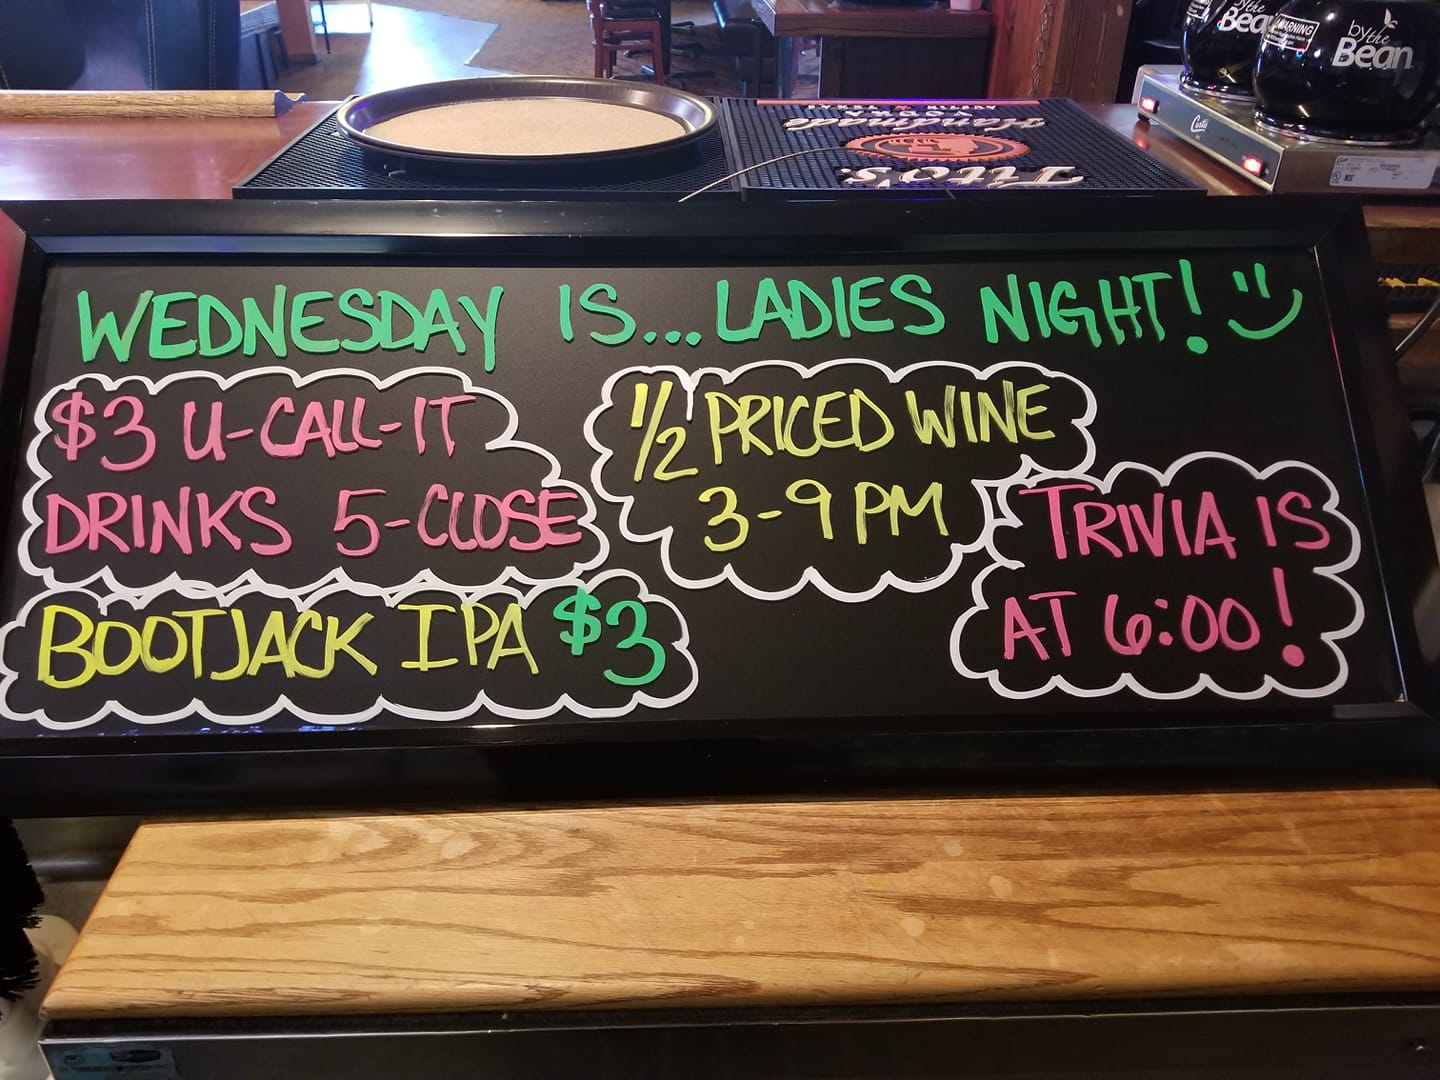 by the
Bean
WARNING
by the
Bean
Curtis
Tito's
Handmade
VODKA
AUSTIN TEXAS
WEDNESDAY IS...LADIES NIGHT!
$3 U-CALL-IT
DRINKS 5-CLOSE
1/2 PRICED WINE
3-9 PM
TRIVIA IS
AT 6:00!
BOOTJACK IPA $3